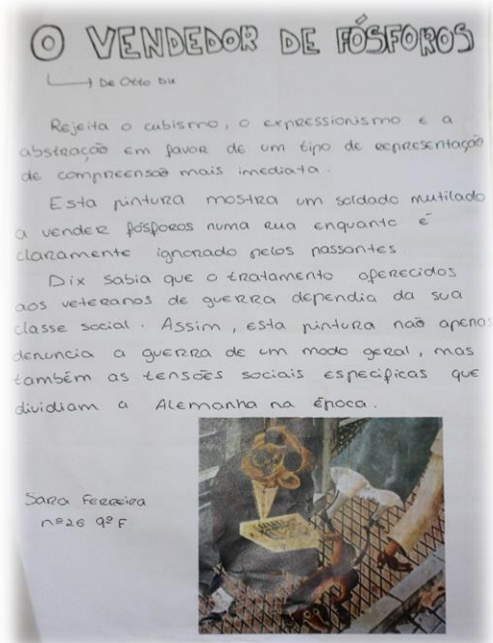 O VENDEDOR DE FÓSFOROS
De Otto Dix
Rejeita o cubismo, o expressionismo e a
abstração em favor de um tipo de representação
de compreensão mais imediata.
Esta pintura mostra um soldado mutilado
a vender fósforos numa rua enquanto é
claramente ignorado pelos passantes.
Dix sabia que o tratamento oferecidos
aos veteranos de guerra dependia da sua
classe social. Assim, esta pintura não apenas
denuncia a guerra de um modo geral, mas
também as tensões sociais especificas que
dividiam a Alemanha na época.
Sara Ferreira
nº26 9ºF